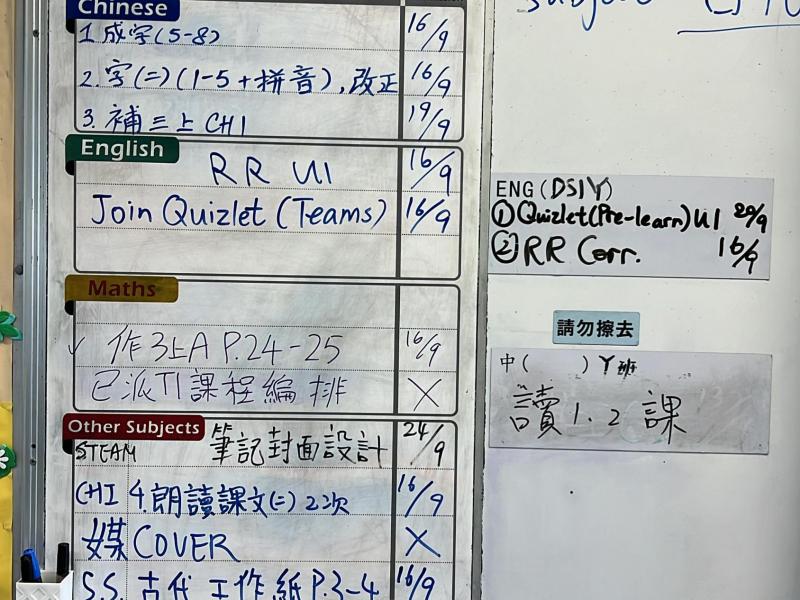 Chinese
1. 成字(5-8) 16/9
2. 字(二)(1-5+拼音),改正 16/9
3. 補三上CHI 19/9
English
RR U1 16/9
Join Quizlet (Teams) 16/9
Maths
✓ 作3上A P.24-25 16/9
已派T1課程編排 X
Other Subjects
STEAM 筆記封面設計 24/9
CHI 4.朗讀課文(二)2次 16/9
媒COVER X
S.S. 古代工作紙P.3-4 16/9
subject
ENG(DS1Y)
①Quizlet(Pre-learn)U1 20/9
②RR Corr. 16/9
請勿擦去
中( )Y班
讀1.2課